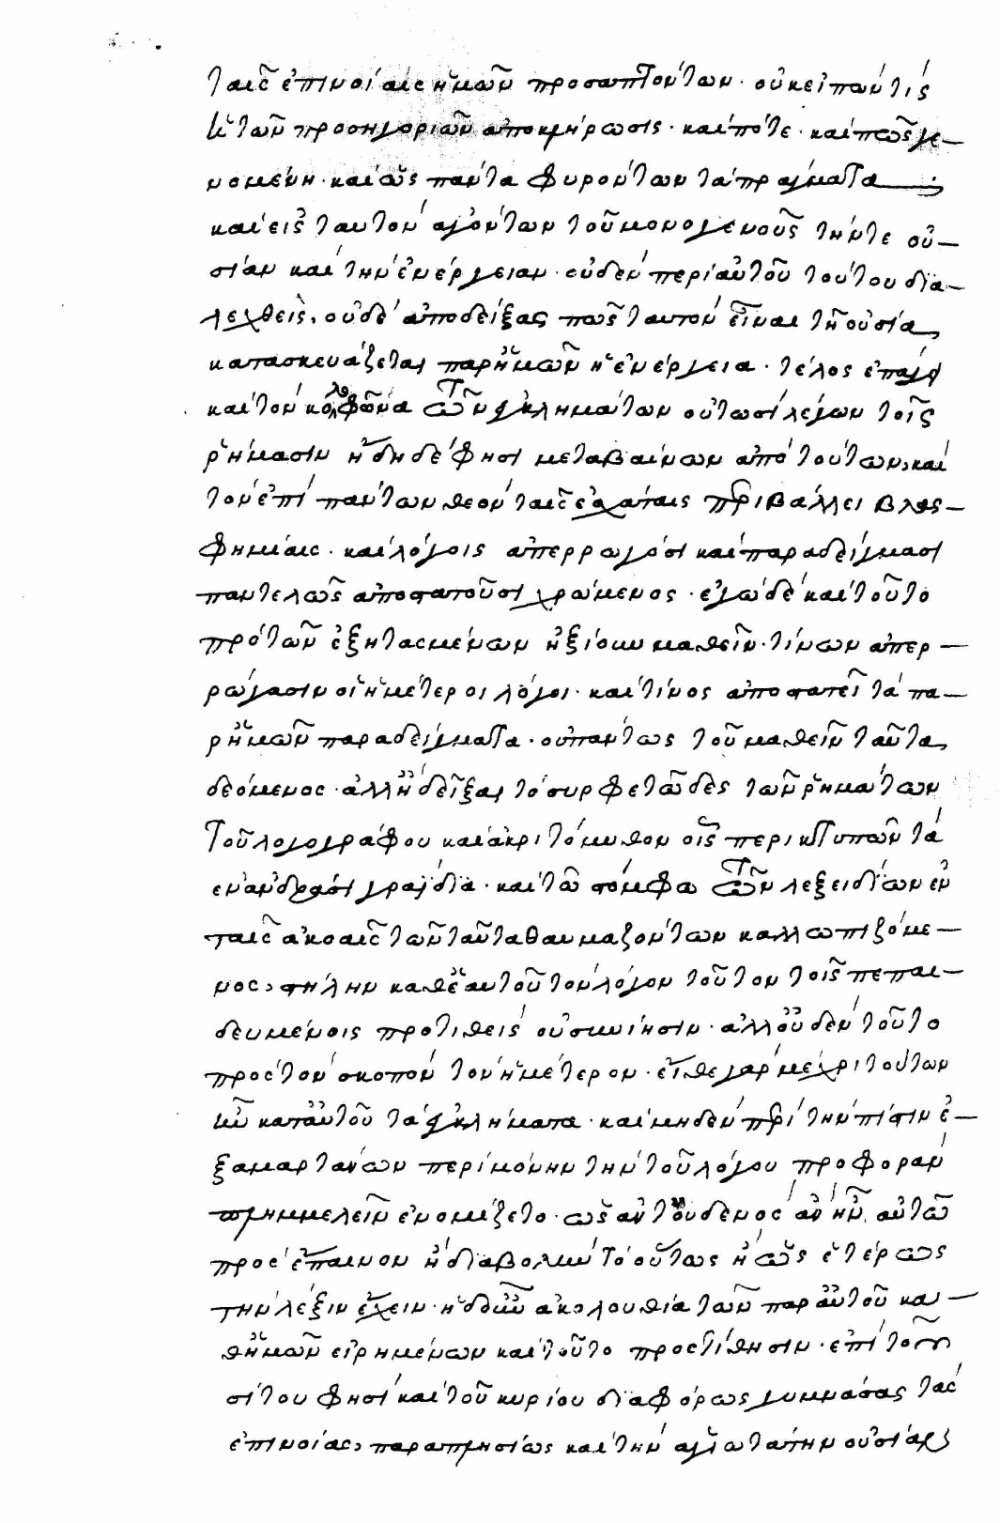 ταῖς ἐπινοίαις ἡμῶν προσαπτόντων. οὐκ εἰπὼν τίς
ἡ τῶν προσηγοριῶν ἀποκλήρωσις. καὶ πότε. καὶ πῶς γε-
νομένη. καὶ ὡς πάντα φυρόντων τὰ πράγματα
καὶ εἰς ταυτὸν ἀγόντων τοῦ μονογενοῦς τήν τε οὐ-
σίαν καὶ τὴν ἐνέργειαν. οὐδὲν περὶ αὐτοῦ τούτου δια-
λεχθεὶς. οὐδὲ ἀποδείξας πῶς ταυτὸν εἶναι τῇ οὐσίᾳ,
κατασκευάζεται παρ' ἡμῶν ἡ ἐνέργεια. τέλος ἐπάγει
καὶ τὸν κολοφῶνα τῶν ἐγκλημάτων οὑτωσὶ λέγων τοῖς
ῥήμασιν ἤδη δέ φησι μεταβαίνων ἀπὸ τούτων, καὶ
τὸν ἐπὶ πάντων θεὸν ταῖς ἐσχάταις περιβάλλει βλας-
φημίαις. καὶ λόγοις ἀπερρωγόσι καὶ παραδείγμασι
παντελῶς ἀποστατοῦσι χρώμενος. ἐγὼ δὲ καὶ τοῦτο
πρὸ τῶν ἐξητασμένων ἠξίουν μαθεῖν. τίνων ἀπερ-
ρώγασιν οἱ ἡμέτεροι λόγοι. καὶ τίνος ἀποστατεῖ τὰ πα-
ρ' ἡμῶν παραδείγματα. οὐ πάντως τοῦ μαθεῖν ταῦτα,
δεόμενος. ἀλλ' ἢ δεῖξαι τὸ συρφετῶδες τῶν ῥημάτων
τοῦ λογογράφου καὶ ἀκριτόμυθον οἷς περικτυπῶν τὰ
ἐν ἀνδράσι γραΐδια. καὶ τῷ στόμφῳ τῶν λεξειδίων ἐν
ταῖς ἀκοαῖς τῶν ταῦτα θαυμαζόντων καλλωπιζόμε-
νος, στήλην καθ' ἑαυτοῦ τὸν λόγον τοῦτον τοῖς πεπαι-
δευμένοις προτιθεὶς οὐ συνίησιν. ἀλλ' οὐδὲν τοῦτο
πρὸς τὸν σκοπὸν τὸν ἡμέτερον. εἴθε γὰρ μέχρι τούτων
ἦν κατ' αὐτοῦ τὰ ἐγκλήματα. καὶ μηδὲν περὶ τὴν πίστιν ἐ-
ξαμαρτάνων περὶ μόνην τὴν τοῦ λόγου προφορὰν
πλημμελεῖν ἐνομίζετο. ὡς ἀντ' οὐδενὸς ἂν ἦν αὐτῷ
πρὸς ἔπαινον ἢ διαβολὴν τὸ οὕτως ἢ ὡς ἑτέρως
τὴν λέξιν ἔχειν. ἡ δ' οὖν ἀκολουθία τῶν παρ' αὐτοῦ κα-
θ' ἡμῶν εἰρημένων καὶ τοῦτο προστίθησιν. ἐπὶ τοῦ
σίτου φησὶ καὶ τοῦ κυρίου διαφόρως γυμνάσας τὰς
ἐπινοίας, παραπλησίως καὶ τὴν ἁγιωτάτην οὐσίαν